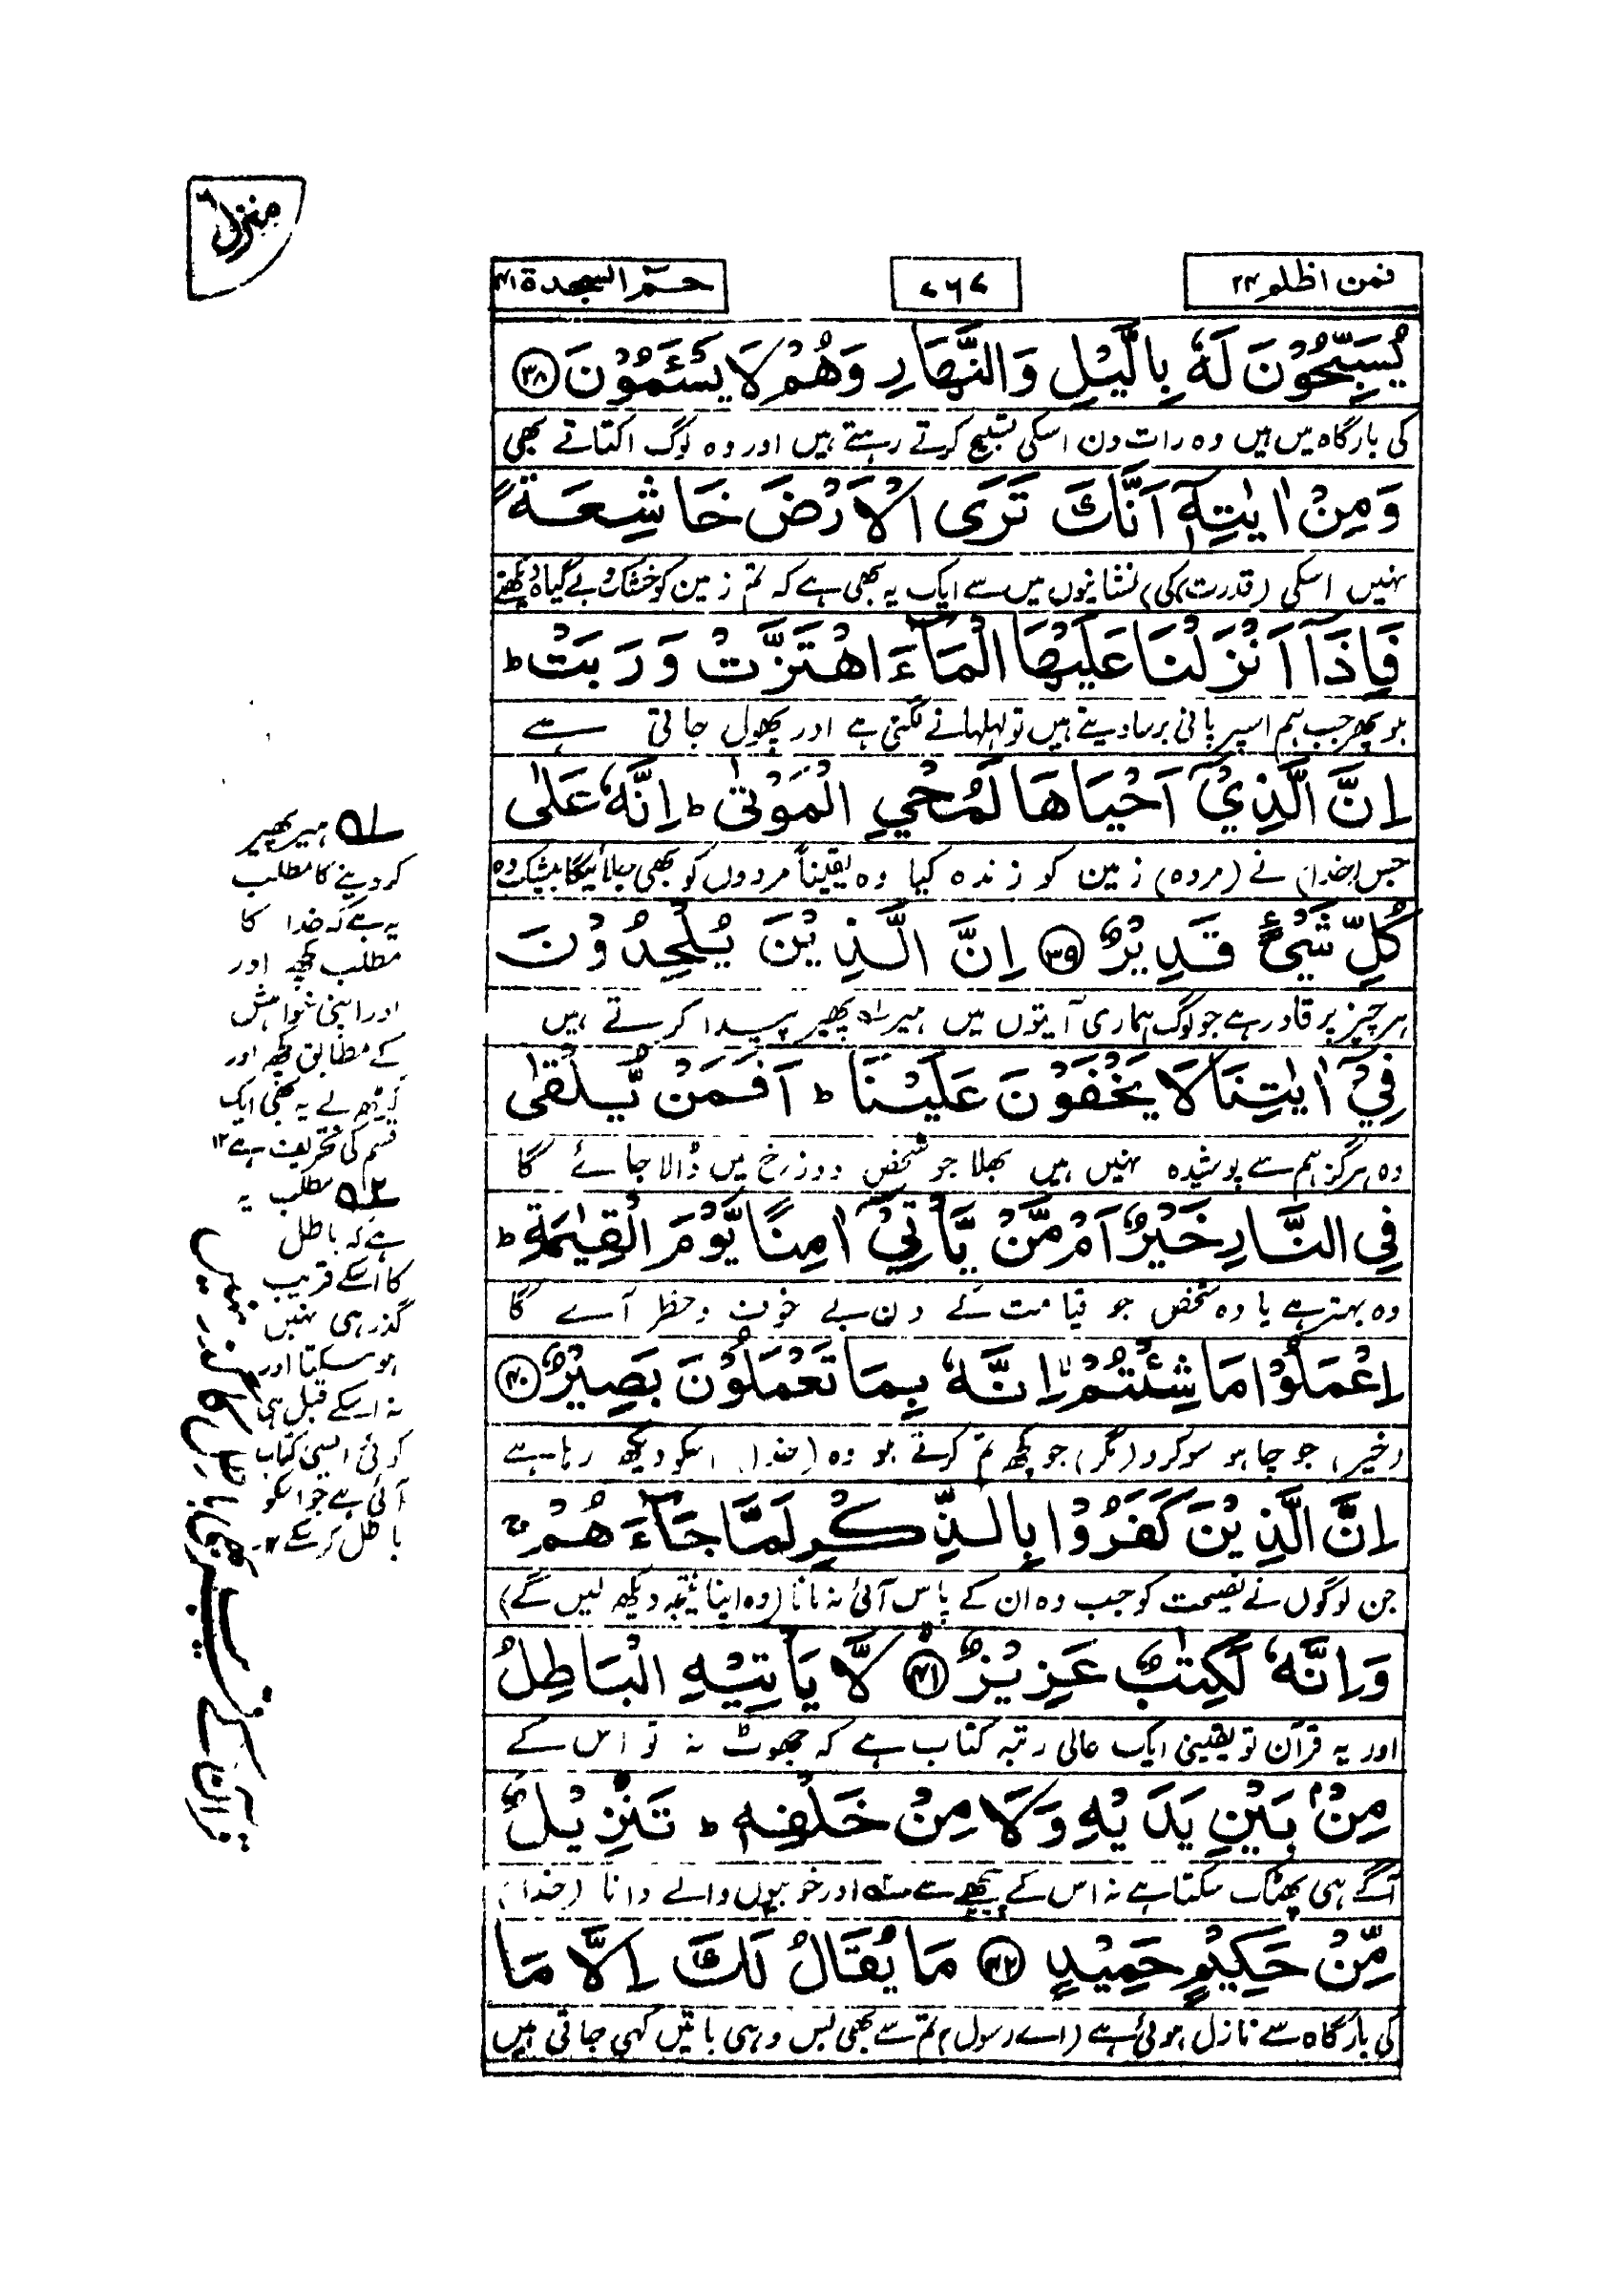 منزل ۶
فمن اظلم ۲۴
۷۶۷
حٰمٓ السجدة ۴۱
يُسَبِّحُوْنَ لَهٗ بِالَّيْلِ وَالنَّهَارِ وَهُمْ لَا يَسْـَٔمُوْنَ ۳۸
کی بارگاہ میں ہیں وہ رات دن اسکی تسبیح کرتے رہتے ہیں اور وہ لوگ اکتاتے بھی
وَمِنْ اٰيٰتِهٖٓ اَنَّكَ تَرَى الْاَرْضَ خَاشِعَةً
نہیں اسکی (قدرت کی) نشانیوں میں سے ایک یہ بھی ہے کہ تم زمین کو خشک و بے گیاہ دیکھتے
فَاِذَآ اَنْزَلْنَا عَلَيْهَا الْمَآءَ اهْتَزَّتْ وَرَبَتْ ؕ
ہو پھر جب ہم اسپر پانی برسا دیتے ہیں تو لہلہانے لگتی ہے اور پھول جاتی ہے
اِنَّ الَّذِيْٓ اَحْيَاهَا لَمُحْيِ الْمَوْتٰى ؕ اِنَّهٗ عَلٰى
جس (خدا) نے (مردہ) زمین کو زندہ کیا وہ یقیناً مردوں کو بھی جلائیگا بیشک وہ
كُلِّ شَيْءٍ قَدِيْرٌ ۳۹ اِنَّ الَّذِيْنَ يُلْحِدُوْنَ
ہر چیز پر قادر ہے جو لوگ ہماری آیتوں میں ہیر ۱؎ پھیر پیدا کرتے ہیں
فِيْٓ اٰيٰتِنَا لَا يَخْفَوْنَ عَلَيْنَا ؕ اَفَمَنْ يُّلْقٰى
وہ ہرگز ہم سے پوشیدہ نہیں ہیں بھلا جو شخص دوزخ میں ڈالا جائے گا
فِى النَّارِ خَيْرٌ اَمْ مَّنْ يَّاْتِيْٓ اٰمِنًا يَّوْمَ الْقِيٰمَةِ ؕ
وہ بہتر ہے یا وہ شخص جو قیامت کے دن بے خوف و خطر آئے گا
اِعْمَلُوْا مَا شِئْتُمْ ۙ اِنَّهٗ بِمَا تَعْمَلُوْنَ بَصِيْرٌ ۴۰
(خیر) جو چاہو سو کرو (مگر) جو کچھ تم کرتے ہو وہ (خدا) اسکو دیکھ رہا ہے
اِنَّ الَّذِيْنَ كَفَرُوْا بِالذِّكْرِ لَمَّا جَآءَهُمْ ۚ
جن لوگوں نے نصیحت کو جب وہ ان کے پاس آئی نہ مانا (وہ اپنا نتیجہ دیکھ لیں گے)
وَاِنَّهٗ لَكِتٰبٌ عَزِيْزٌ ۴۱ لَّا يَاْتِيْهِ الْبَاطِلُ
اور یہ قرآن تو یقینی ایک عالی رتبہ کتاب ہے کہ جھوٹ نہ تو اس کے
مِنْۢ بَيْنِ يَدَيْهِ وَلَا مِنْ خَلْفِهٖ ؕ تَنْزِيْلٌ
آگے ہی پھٹک سکتا ہے نہ اس کے پیچھے سے ۲؎ اور خوبیوں والے دانا (خدا)
مِّنْ حَكِيْمٍ حَمِيْدٍ ۴۲ مَا يُقَالُ لَكَ اِلَّا مَا
کی بارگاہ سے نازل ہوئی ہے (اے رسول) تم سے بھی بس وہی باتیں کہی جاتی ہیں
۱؎ ہیر پھیر
کر دینے کا مطلب
یہ ہے کہ خدا کا
مطلب کچھ اور
اور اپنی خواہش
کے مطابق کچھ اور
گڑھ لے یہ بھی ایک
قسم کی تحریف ہے ۱۲
۲؎ مطلب یہ
ہے کہ باطل
کا اسکے قریب
گذر ہی نہیں
ہو سکتا اور
نہ اسکے قبل ہی
کوئی ایسی کتاب
آئی ہے جو اسکو
باطل کر سکے ۱۲
قرآن کے قریب بھی باطل کا گذر نہیں